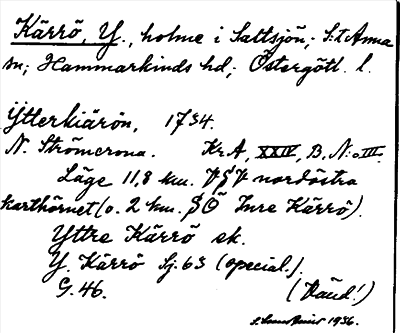 Kärrö, Y., holme i Saltsjön; S:t Anna
sn; Hammarkinds hd; Östergötl. l.
Ytterkiärön, 1734.
N. Strömcrona. Kr.A, XXIV, B, N:o III.
Läge 11,8 km. VSV nordöstra
karthörnet (o. 2 km. SÖ Inre Kärrö).
Yttre Kärrö ek.
Y. Kärrö Sj. 63 (special.).
G. 46.
1936.